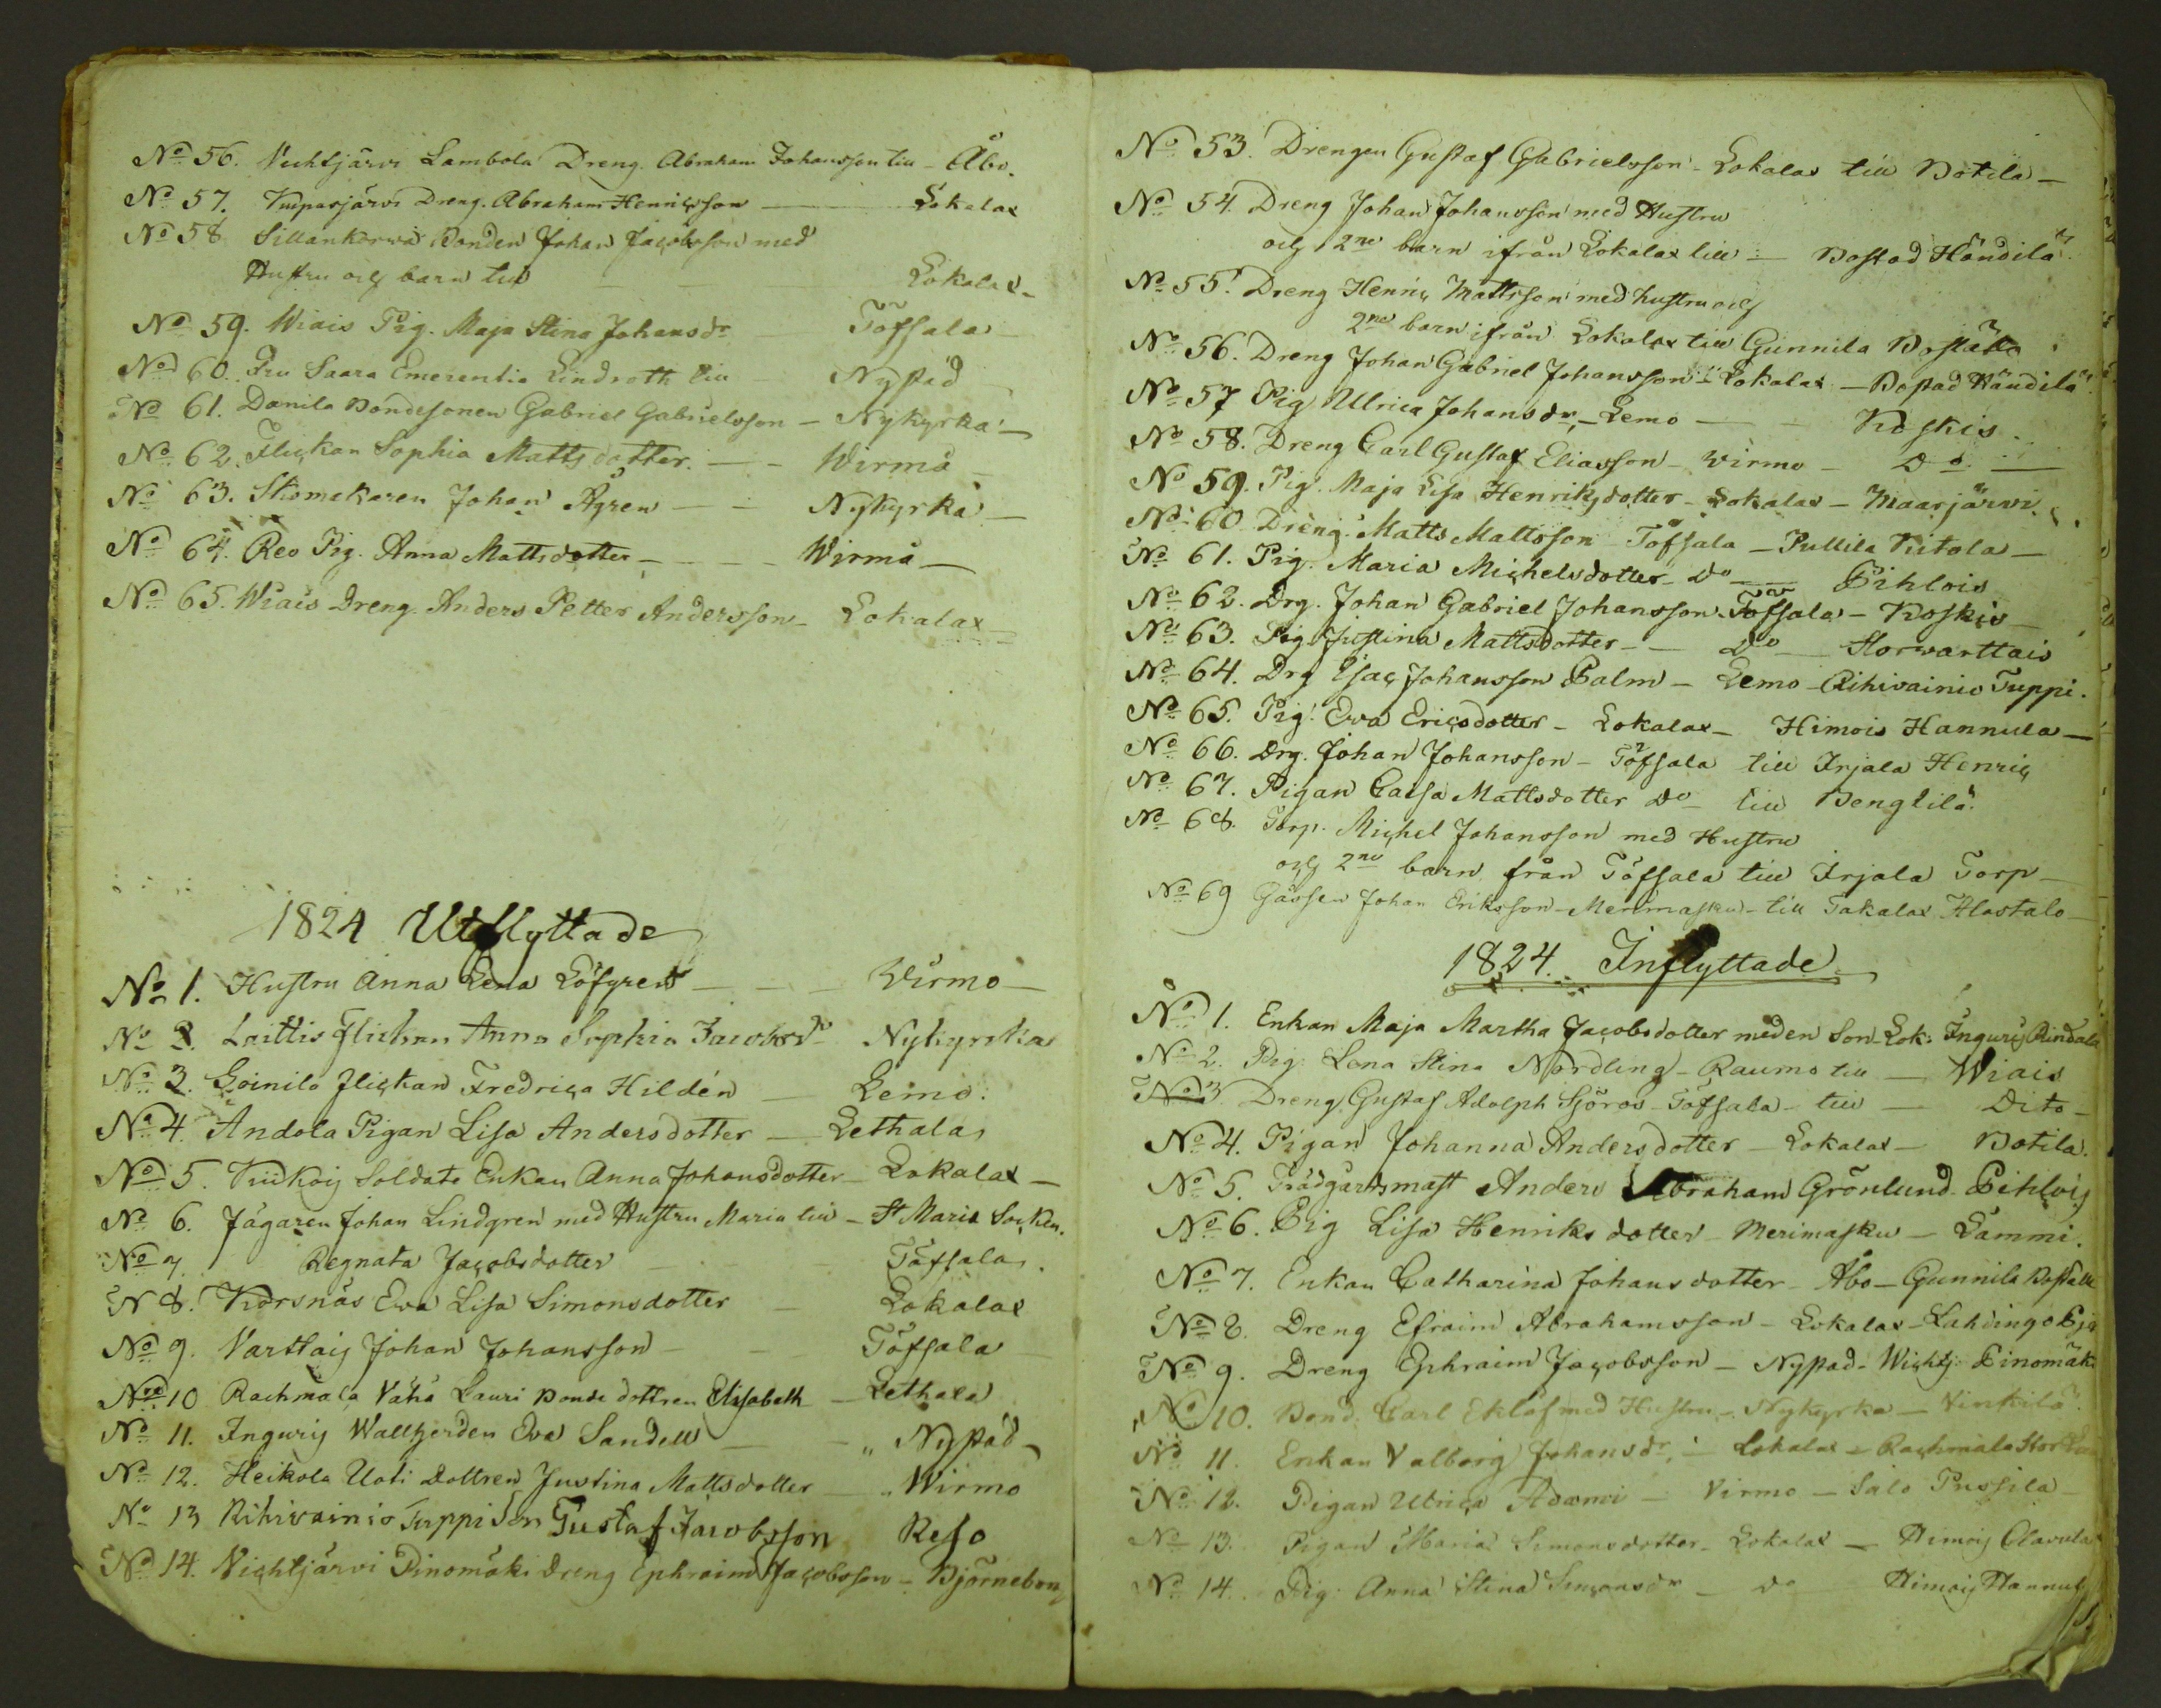 No 56. Vichtjärvi Lambola Dreng. Abraham Johansson till - Åbo.
No 57. Vuparjärvi Dreng. Abraham Henricsson — Lokalax
No 58 Sillankorva Bonden Johan Jacobsson med
Hustru och barn till Lokalax -
No 59. Wiais Pig. Maja Stina Johansdr Töfsala
No 60. Fru Saara Emerentia Lindroth till Nystad
No 61. Danila Bondesonen Gabriel Gabrielsson - Nykyrka —
No 62. Flickan Sophia Mattsdotter. — - Wirmo
No 63. Skomakaren Johan Ågren — - Nykyrka —
No 64. Reo Pig. Anna Mattsdotter - - - - Wirmo —
No 65. Wiais Dreng. Anders Petter Andersson - Lokalax -
1824 Utflyttade
No 1. Hustru Anna Lena Löfgren — - - Virmo —
No 2. Laittis Flickan Anna Sophia Jacobsdr Nykyrka
No 3. Goinila Flickan Fredrica Hildén — Lemo.
No 4. Andola Pigan Lisa Andersdotter — Lethala
No 5. Kiikois Soldats Enkan Anna Johansdotter - Lokalax —
No 6. Jägaren Johan Lindgren med Hustru Maria till - St Marie Socken.
No 7. Regnata Jacobsdotter - Töfsala.
N 8. Korsnäs Eva Lisa Simonsdotter - Lokalax
No 9. Varttais Johan Johansson - - Töfsala
No 10 Rachmala Vähä Lauri Bonde dottren Elisabeth - Lethala
No 11. Ingvris Wallherden Eva Sandell — - „ Nystad -
No 12. Heikola Uoti Dottren Justina Mattsdotter — „ Wirmo
No 13 Rihivainio Tuppi Son Gustaf Jacobsson Reso
No 14. Vichtjärvi Pinomäki Dreng Ephraim Jacobsson - Björneborg
No 53. Drengen Gustaf Gabrielsson - Lokalax till Botila —
No 54. Dreng Johan Johansson med Hustru
och 2ne barn ifrån Lokalax till — Bostad Händilä.
No 55. Dreng Henric Mattsson med hustru och
2ne barn ifrån Lokalax till Gunnila Boställe
No 56. Dreng Johan Gabriel Johansson - Lokalax - Bostad Händilä.
No 57 Pig Ulrica Johansdr. - Lemo — - Koskis.
No 58. Dreng Carl Gustaf Eliasson - Wirmo - Do —
No 59. Pig. Maja Lisa Henriksdotter - Lokalax - Maarjärvi.
No 60. Dreng. Matts Mattsson Töfsala - Pullila Kitola —
No 61. Pig. Maria Michelsdotter - Do — Pihlois
No 62. Drg. Johan Gabriel Johansson - Töfsala - Koskis —
No 63. Pig Justina Mattsdotter - — Do — Storvarttais
No 64. Drg Isac Johansson Palm - Lemo - Rihivainio Tuppi.
No 65. Pig. Eva Ericsdotter - Lokalax - Himois Hannula —
No 66. Drg. Johan Johansson - Töfsala till Irjala Henric
No 67. Pigan Caisa Mattsdotter Do till Bengtilä.
No 68. Torp. Michel Johansson med Hustru
och 2ne barn från Töfsala till Irjala Torp —
No 69 Gåssen Johan Eriksson - Merimasku - till Takalax Alastalo —
1824. Inflyttade
No 1. Enkan Maja Martha Jacobsdotter med en Son - Lok: Ingvris Rindala
No 2. Pig: Lena Stina Nordling - Raumo till — Wiais
No 3 Dreng Gustaf Adolph Sjöros - Töfsala - till — Dito -
No 4. Pigan Johanna Andersdotter - Lokalax - Botila.
No 5. Trädgårdsmast Anders Abraham Grönlund. Pihlois
No 6. Pig Lisa Henriksdotter - Merimasku - Lammi.
No 7. Enkan Catharina Johansdotter - Åbo - Gunnila Boställe
No 8. Dreng Efraim Abrahamsson - Lokalax - Lahdingo
No 9. Dreng Ephraim Jacobsson - Nystad - Wichtj: Pinomäk
No 10. Bond. Carl Eklöf med Hustru - Nykyrka - Vinkilä.
No 11. Enkan Valborg Johansdr. - Lokalax - Rachmala Stor
No 12. Pigan Ulrica Adamsi - Virmo - Salo Pussila -
No 13. Pigan Maria Simonsdotter - Lokalax — Himois Olavula
No 14. Pig. Anna Stina Simonsdr - do Himois Hannul